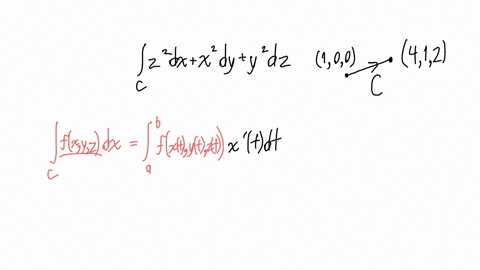 ∫_C z²dx+x²dy+y²dz (1,0,0) (4,1,2)
C
∫_C f(x,y,z)dx = ∫_a^b f(x(t),y(t),z(t)) x'(t)dt